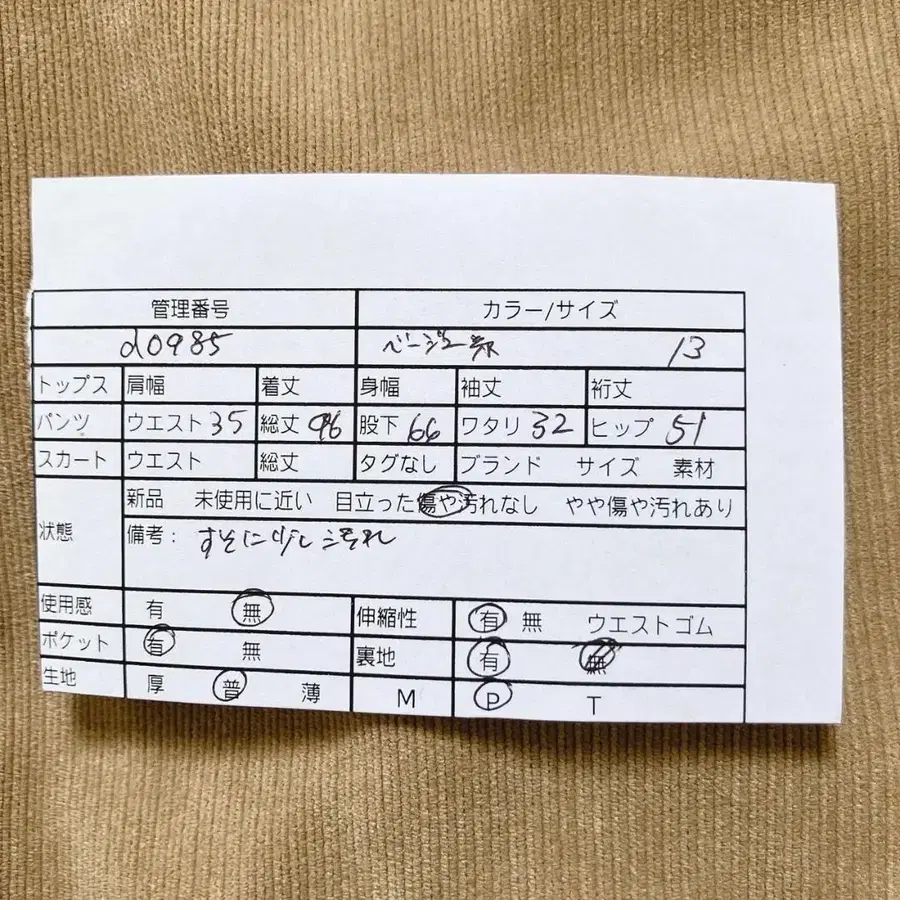 管理番号 カラー/サイズ
d0985 ベージュ系 13
トップス 肩幅 着丈 身幅 袖丈 裄丈
パンツ ウエスト 35 総丈 96 股下 66 ワタリ 32 ヒップ 51
スカート ウエスト 総丈 タグなし ブランド サイズ 素材
新品 未使用に近い 目立った傷や汚れなし やや傷や汚れあり
状態 備考: すそに少し汚れ
使用感 有 無 伸縮性 有 無 ウエストゴム
ポケット 有 無 裏地 有 無
生地 厚 普 薄 M P T